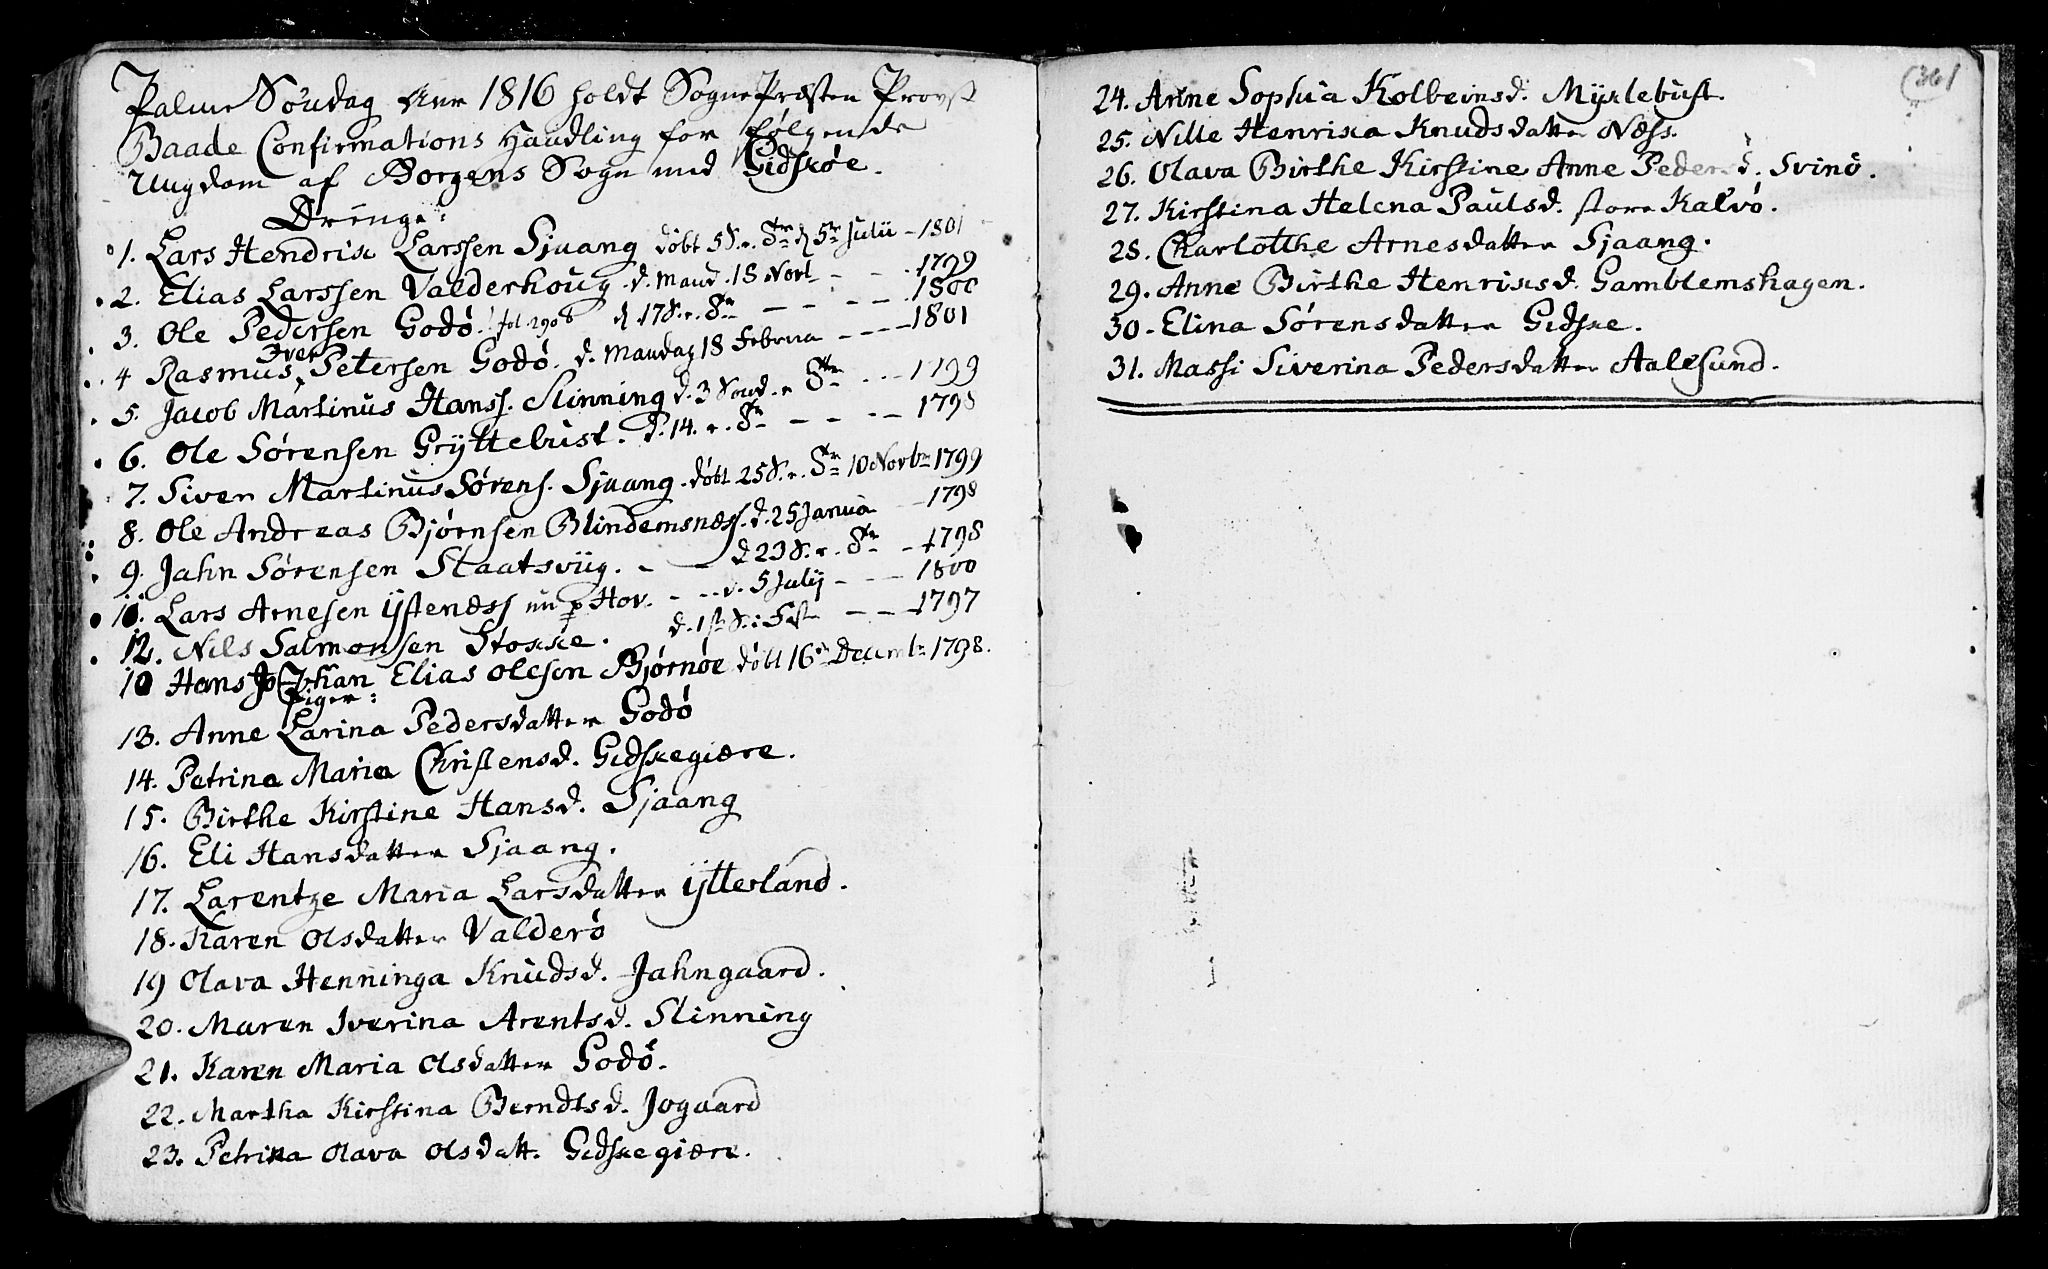 Palme Søndag Anno 1816 holdt Sogne Præsten Provst
Baade Confirmations Handling for følgende
Ungdom af Borgens Sogn med Gidskøe.
Drenge:
1. Lars Hendrik Larssen Sjaang døbt 5 S. p. Str d 5te Julii - 1801
2. Elias Larssen Valderhoug. d. 18 - - . 1799
3. Ole Pedersen Godø. fol. 290 d. 17 S. p. Str - - - - . 1800
4 Rasmus Iver Petersen Godø. d. Mandag 18 Februa - - - - 1801
5. Jacob Martinus Hanss. Slinning d. 3 Sønd. p Str - - - 1799
6. Ole Sørensen Gryttebust. d. 14. p. Str - - - - 1798
7. Siver Martinus Sørens. Sjaang. døbt 25 S. p. Str 10 Novbr 1799
8. Ole Andreas Bjørnsen Blindemsnæss. d. 25 Janua - 1798
9. Jahn Sørensen Staatsviig. - - d 23 S. p. Str - 1798
10. Lars Arnesen Ystenæss nu p Hov. - - - d. 5 July - - - 1800
12. Nils Salmonsen Stokke. d. 1ste S. i Fast - - - 1797
10 Hans Johan Elias Olesen Bjørnøe døbt 16de Decembr 1798.
Piger:
13. Anne Larina Pedersdatter Godø
14. Petrina Maria Christensd. Gidskegiære.
15. Birthe Kirstine Hansd. Sjaang
16. Eli Hansdatter Sjaang.
17. Larentze Maria Larsdatter Ytterland.
18. Karen Olsdatter Valderø
19 Olava Henninga Knudsd. Jahngaard.
20. Maren Iverina Arentsd. Slinning
21. Karen Maria Olsdatter Godø.
22. Martha Kirstina Berndtsd. Jogaard
23. Petrina Olava Olsdatt. Gidskegiære.
361
24. Anne Sophia Kolbeinsd. Myklebust.
25. Nille Henrika Knudsdatter Næss.
26. Olava Birthe Kirstine Anne Pedersd. Svinø.
27. Kirstina Helena Paulsd. store Kalvø.
28. Charlotthe Arnesdatter Sjaang.
29. Anne Birthe Henriksd. Gamblemshagen.
30. Elina Sørensdatter Gidske.
31. Massi Siverina Pedersdatter Aalesund.